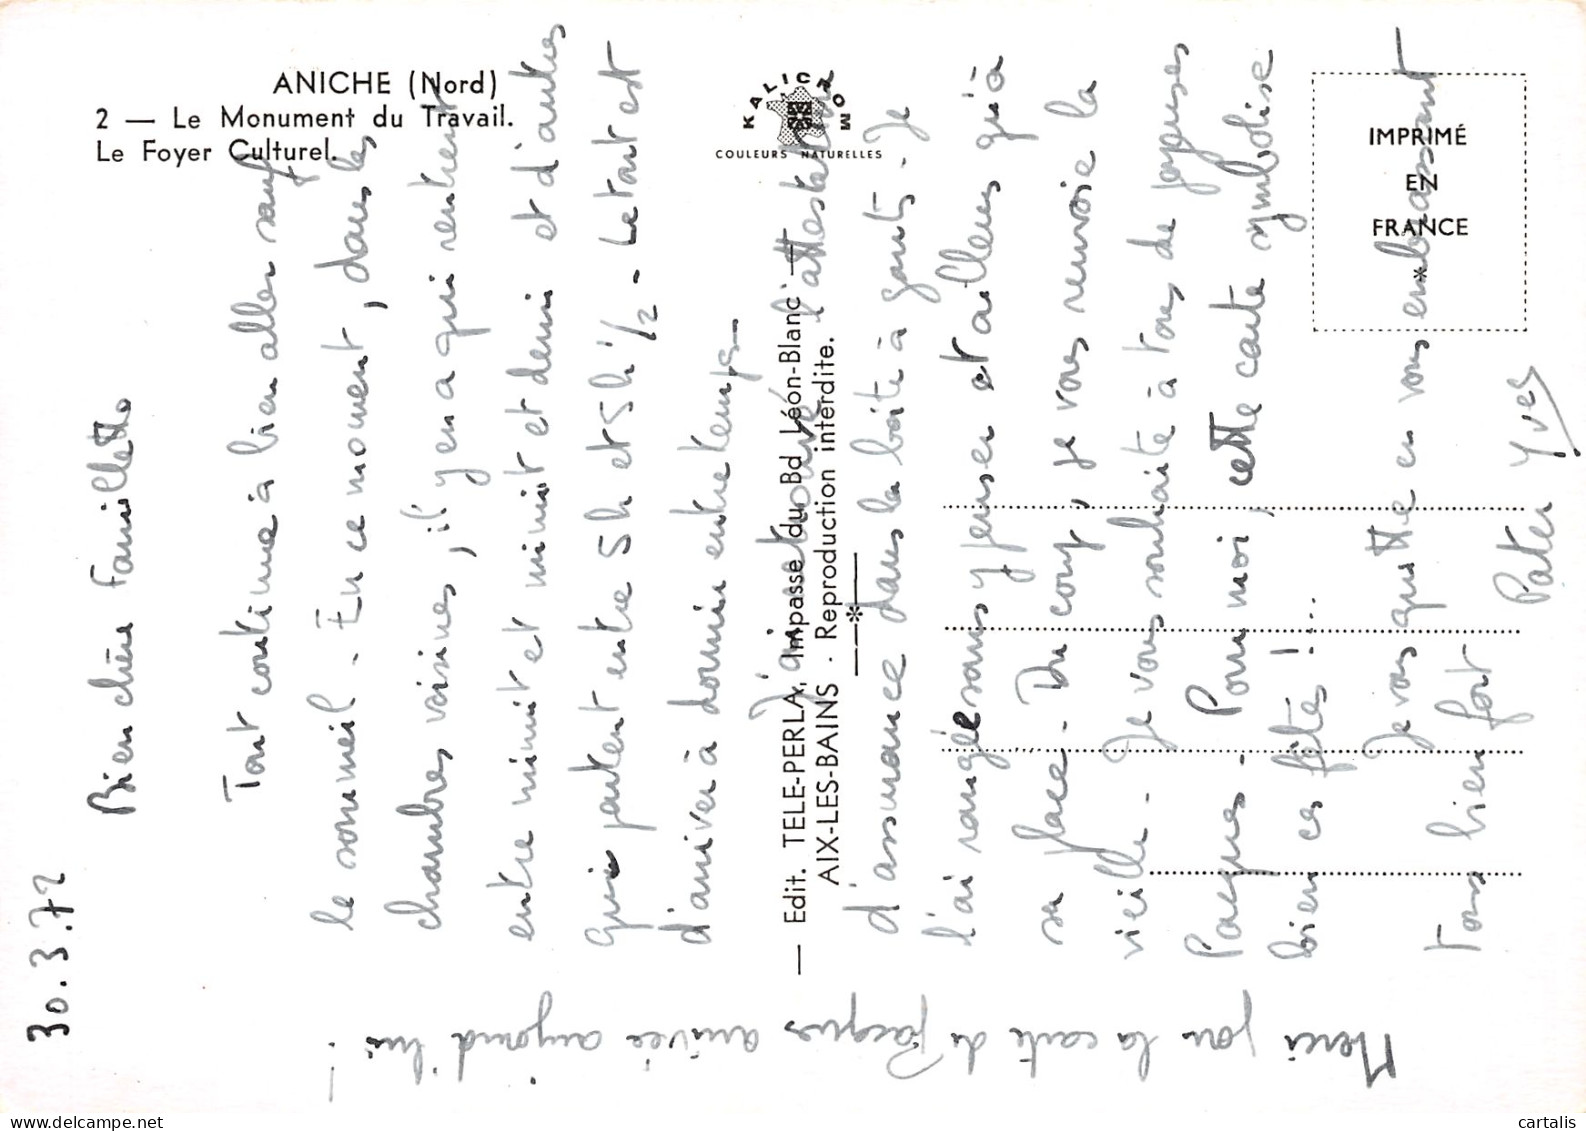 ANICHE (Nord)
2 — Le Monument du Travail.
Le Foyer Culturel.
KALICROM
COULEURS NATURELLES
IMPRIMÉ
EN
FRANCE
— Edit. TELE-PERLA, Impasse du Bd Léon-Blanc —
AIX-LES-BAINS - Reproduction interdite.
30.3.72
Bien chère Famillette
Tout continue à bien aller sauf
le sommeil - En ce moment, dans les
chambres voisines, il y en a qui rentrent
entre minuit et minuit et demi et d'autres
qui partent entre 5h et 5h 1/2 - Le tout est
d'arriver à dormir entretemps -
J'ai retrouvé l'attestation
d'assurance dans la boîte à gants - Je
l'ai rangée sans y penser et ailleurs qu'à
sa place - Du coup, je vous renvoie la
vieille - Je vous souhaite à tous de joyeuses
Pacques - Pour moi, cette carte symbolise
bien ces fêtes !...
Je vous quitte en vous embrassant
tous bien fort
Pater Yves
Merci pour la carte de Pacques arrivée aujourd'hui !
cartalis